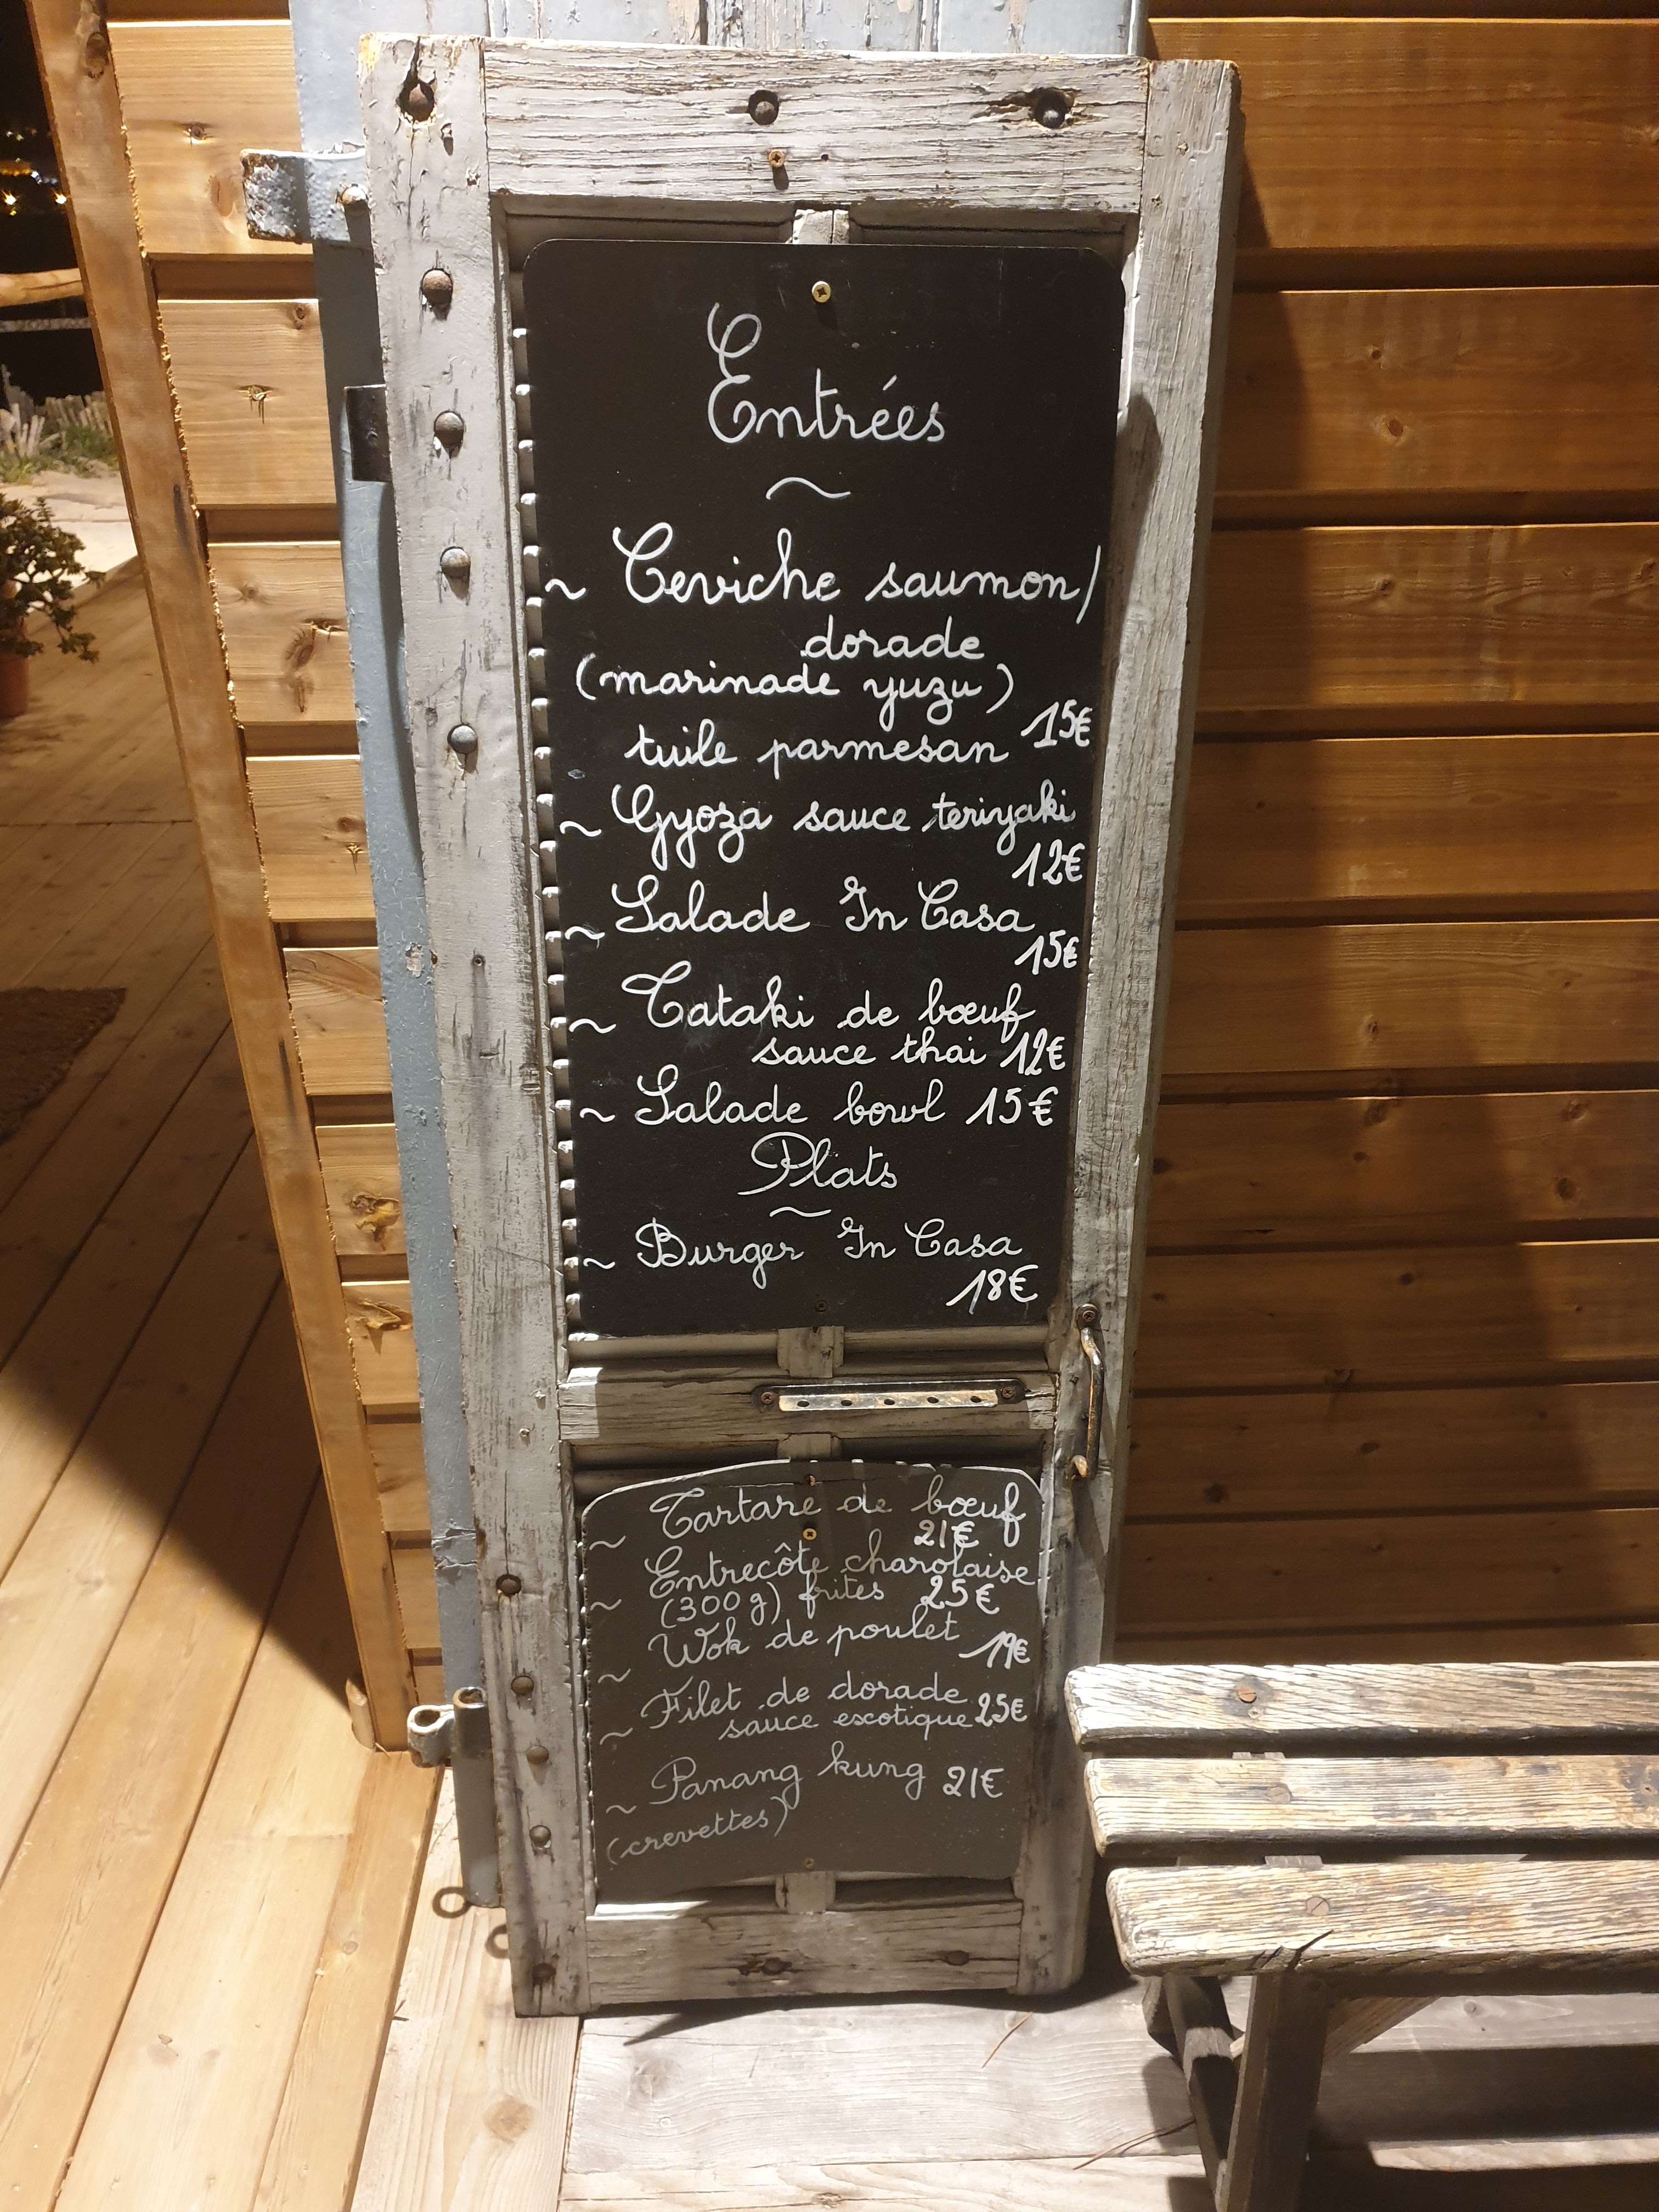 Entrées
~
~ Ceviche saumon/
dorade
(marinade yuzu)
tuile parmesan 15€
~ Gyoza sauce teriyaki
12€
~ Salade In Casa
15€
~ Tataki de bœuf
sauce thai 12€
~ Salade bowl 15€
Plats
~
~ Burger In Casa
18€
~ Tartare de bœuf
21€
~ Entrecôte charolaise
(300g) frites 25€
~ Wok de poulet 19€
~ Filet de dorade
sauce escotique 25€
~ Panang kung 21€
(crevettes)